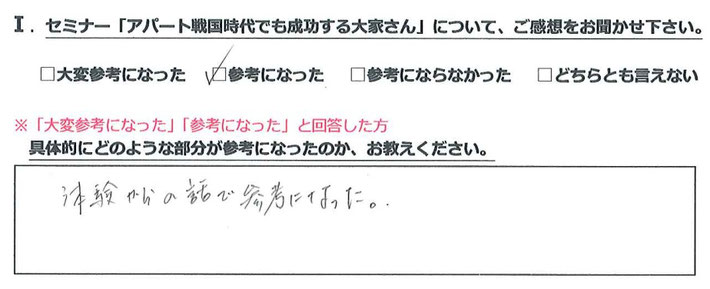 Ⅰ．セミナー「アパート戦国時代でも成功する大家さん」について、ご感想をお聞かせ下さい。
□大変参考になった □参考になった □参考にならなかった □どちらとも言えない
※「大変参考になった」「参考になった」と回答した方
具体的にどのような部分が参考になったのか、お教えください。
体験からの話で参考になった。